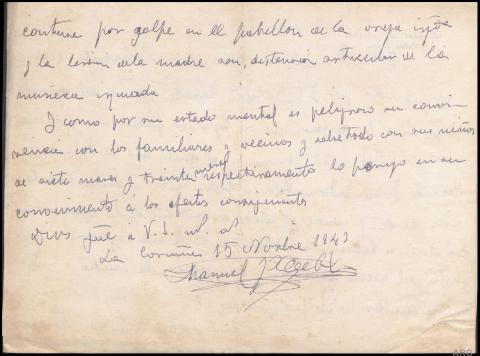 contusa por golpe en el pabellon de la oreja izqda
y la lesion de la madre con, distension articular de la
muñeca izquierda
I como por su estado mental es peligroso su convi-
vencia con los familiares y vecinos y sobretodo con sus niños
de siete meses y treinta meses respectivamente lo pongo en su
conocimiento a los efectos consiguientes
Dios gûe a V. S. mˢ. aˢ
La Coruña 15 Novbre 1943
Manuel
ARG